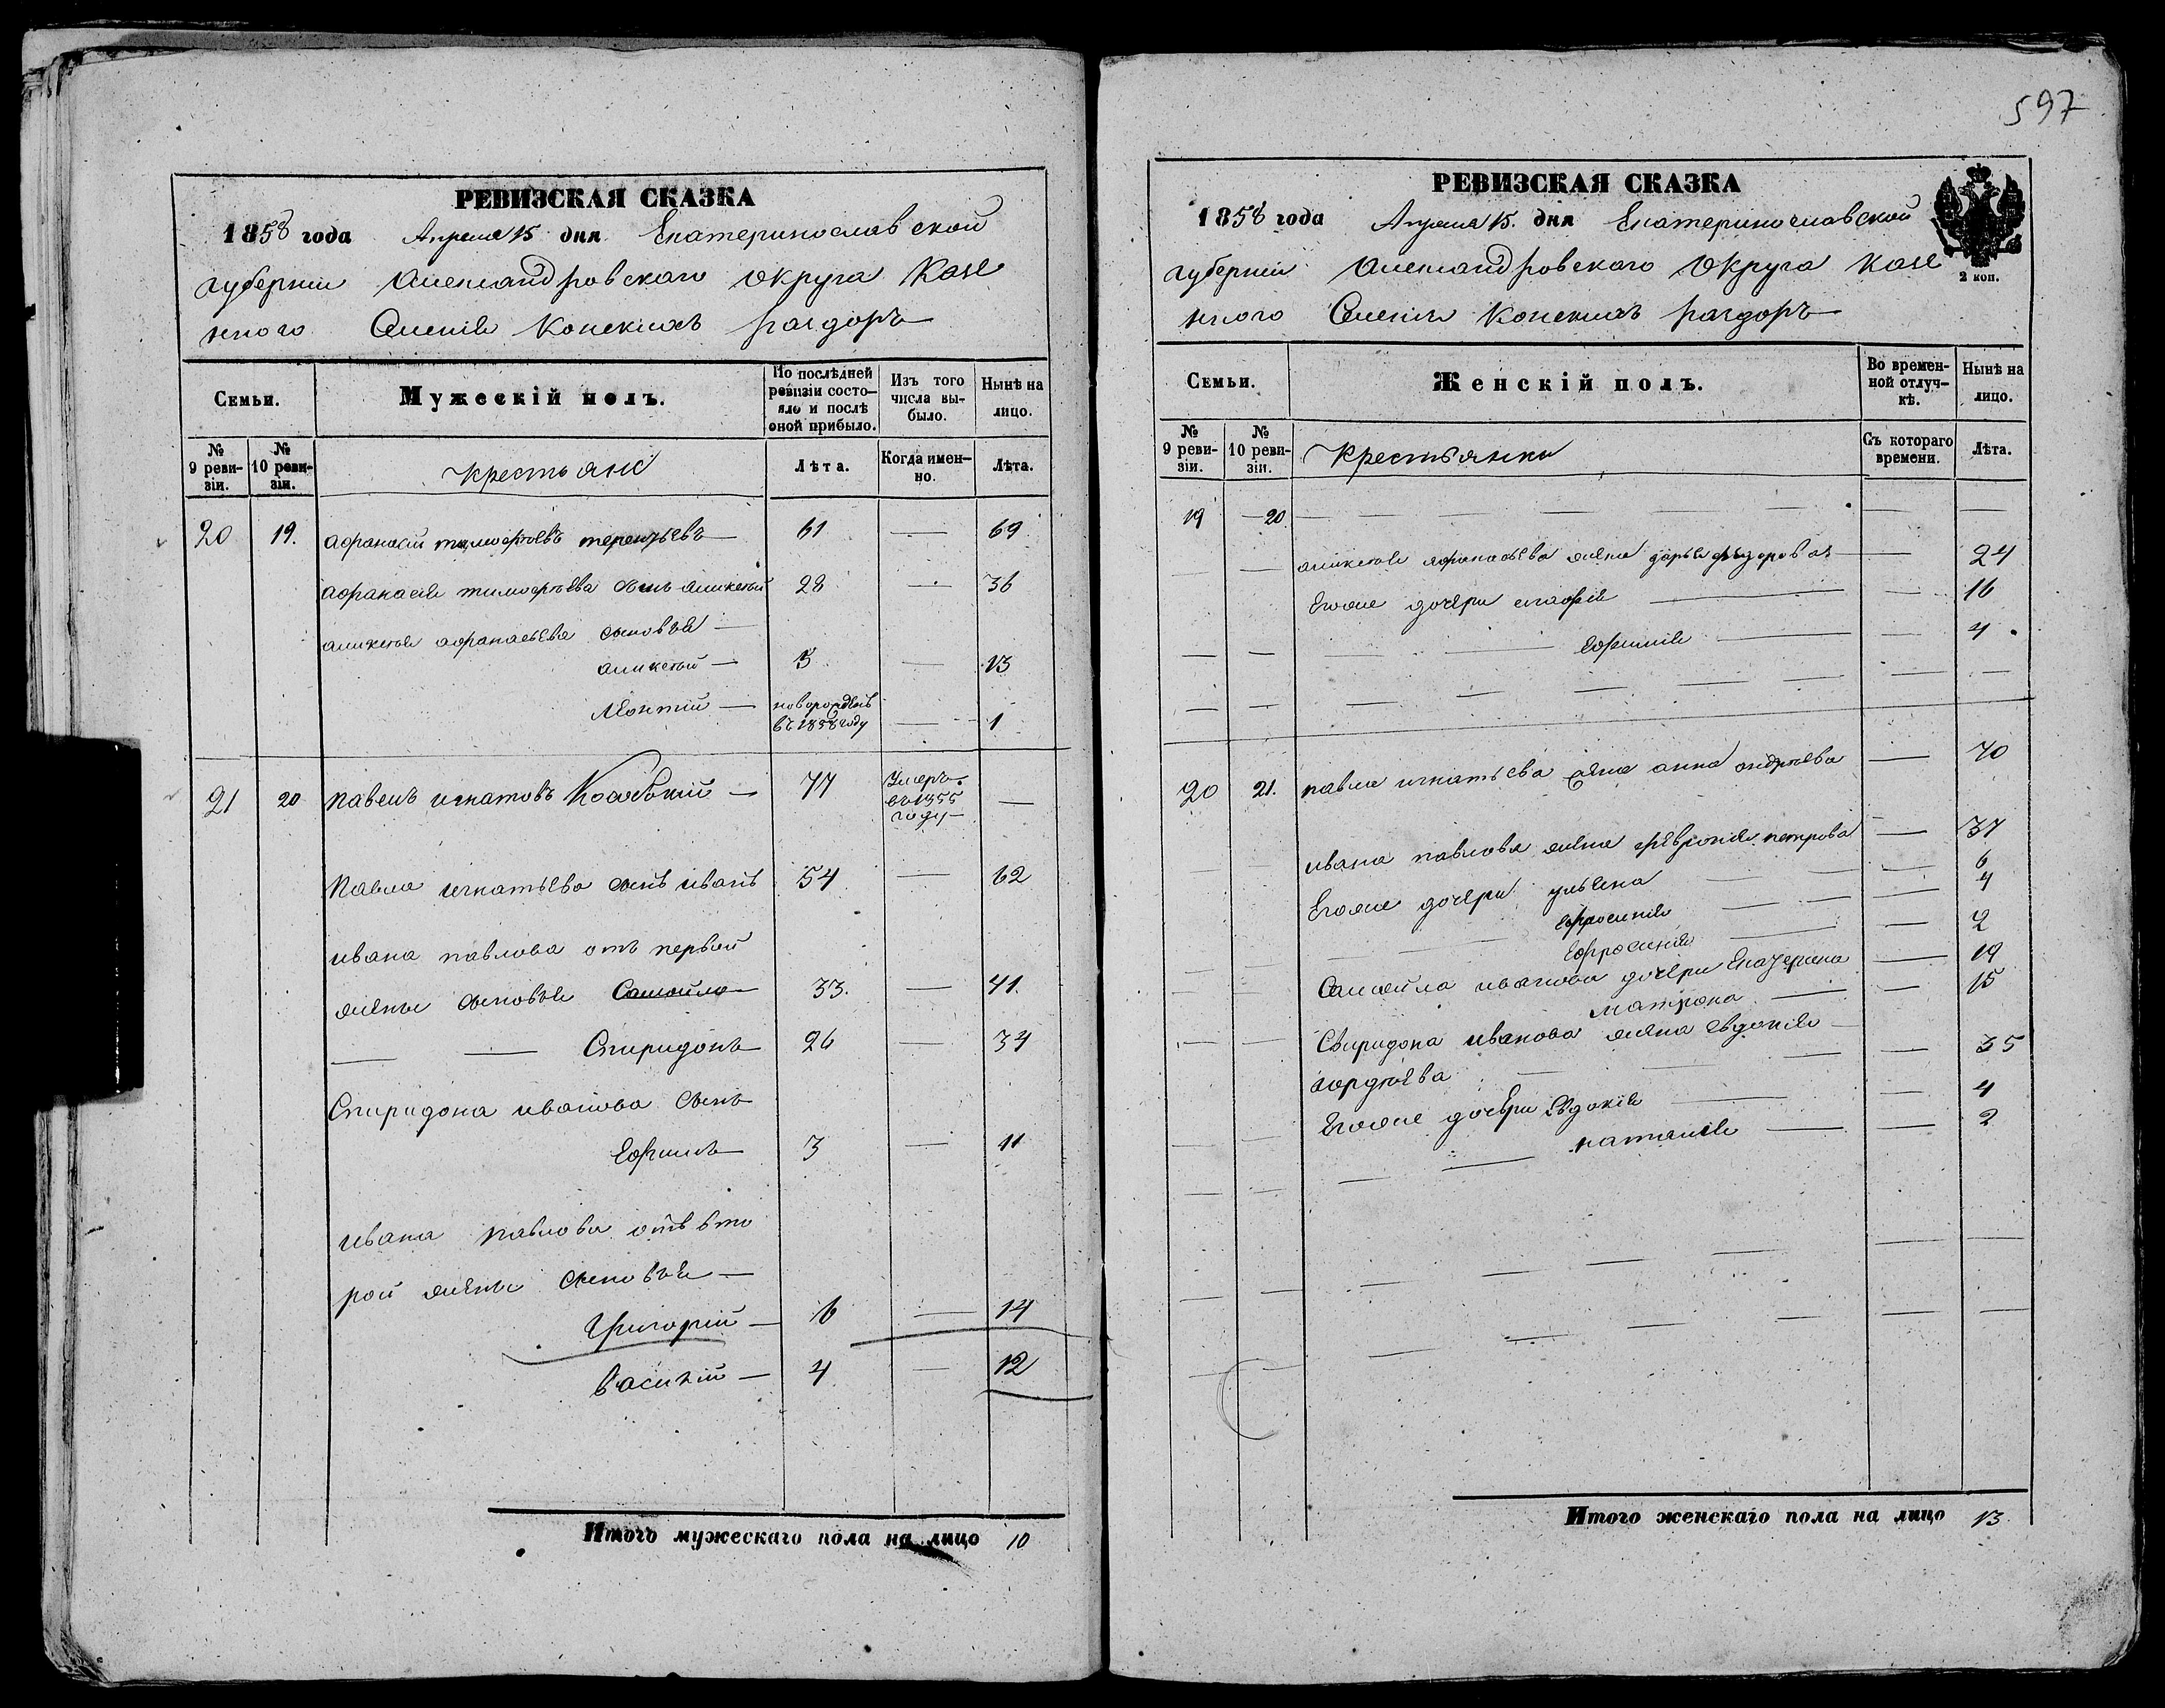 РЕВИЗСКАЯ СКАЗКА
1858 года Апреля 15 дня Екатеринославской
губернии Александровского округа Казе
нного Селенія Конскихъ раздоръ
Семьи.
Мужескій полъ.
По послѣдней ревизіи состояло и послѣ оной прибыло.
Изъ того числа выбыло.
Нынѣ на лицо.
№ 9 ревизіи.
№ 10 ревизіи.
крестьяне
Лѣта.
Когда именно.
Лѣта.
20 19. афанасій тимофѣевъ терентьевъ — 61 — 69
афанасія тимофѣева сынъ аникѣтій 28 — 36
аникѣтія афанасьева сыновья —
аникѣтій — 5 — 13
Леонтій — новорожденъ въ 1858 году — 1
21 20 павелъ игнатовъ 77 Умеръ въ 1855 году —
павла игнатьева сынъ иванъ 54 — 62
ивана павлова отъ первой
жены сыновья Самойло — 33. — 41.
— — Спиридонъ 26 — 34
Спиридона иванова сынъ
Ефимъ — 3 — 11
ивана павлова отъ вто
рой жены сыновья —
Григорій — 6 — 14
Василій — 4 — 12
Итого мужескаго пола на лицо 10
597
РЕВИЗСКАЯ СКАЗКА
1858 года Апреля 15. дня Екатеринославской
губерніи Александровского Округа Казе
нного Селенія Конскихъ раздоръ
2 коп.
Семьи.
Женскій полъ.
Во временной отлучкѣ.
Нынѣ на лицо.
№ 9 ревизіи.
№ 10 ревизіи.
Крестьянки
Съ котораго времени.
Лѣта.
19 — 20 — — — — — —
— — аникѣтія афанасьева жена дарья федорова — — 24
Егоже дочери агафія — — 16
— — — Ефимія — — 4
20 21. павла игнатьева жена анна андрѣева — 70
ивана павлова жена февронія петрова — 37
Егоже дочери ульяна — 6
Ефросинія — 4
Ефросинія — 2
Самойла иванова дочери Екатерина — 19
матрона — — 15
Свиридона иванова жена евдокія —
гордѣева — — 35
Егоже дочери Евдокія — — 4
наталія — — 2
Итого женскаго пола на лицо 13.